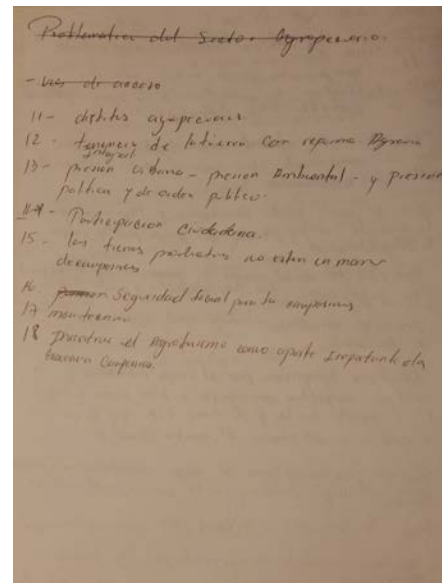 Problematica del Sector Agropecuario.
- Vias de acceso
11 - distritos agropecuarios
12 - tenencia de la tierra con reforma Agraria
integral
13 - presion urbana - presion Ambiental - y presion
politica y de orden publico.
14 - Participacion Ciudadana.
15 - las tierras productivas no estan en manos
de campesinos
16 Seguridad Social para los campesinos
17
18 el Agroturismo como aporte Importante a la
Campesina.